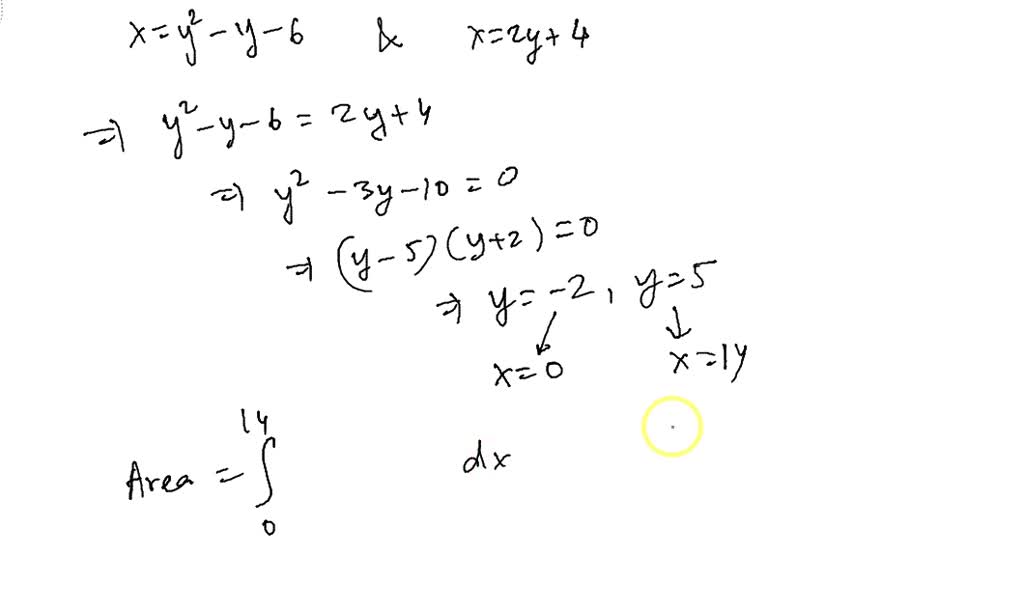 x=y²-y-6 & x=2y+4
⇒ y²-y-6=2y+4
⇒ y²-3y-10=0
⇒ (y-5)(y+2)=0
⇒ y=-2, y=5
↙ ↓
x=0 x=14
14
Area = ∫ dx
0